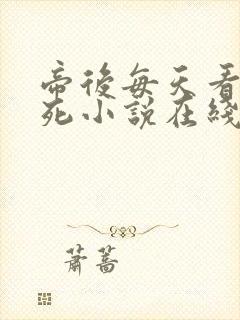 帝後每天看
死小說在綫
蕭蒿